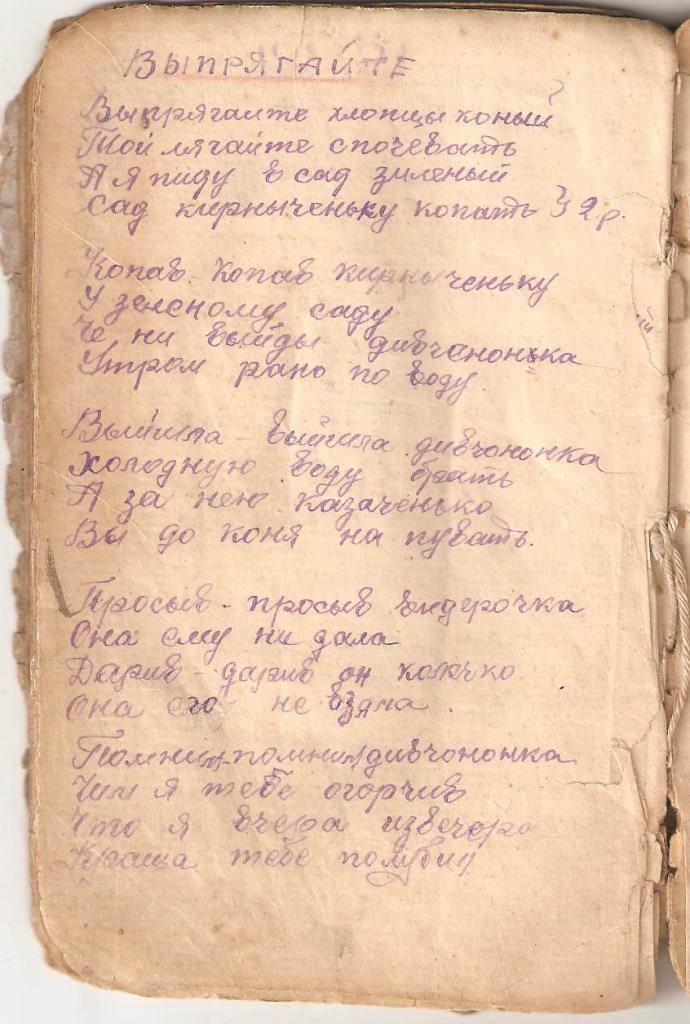 ВЫПРЯГАЙТЕ
Выпрягайте хлопцы коный
Той лягайте спочевать
А я пиду в сад зиленый
Сад кирныченьку копать } 2 р.
Копав - копав кирныченьку
У зеленому саду
Че ни выйды дивчононька
Утром рано по воду
Выйшла - выйшла дивчононка
Холодную воду брать
А за нею казаченько
Вы до коня на пувать.
Просыв - просыв видерочка
Она ему ни дала
Дарив - дарив он колечко
Она его не взяла.
дивчононка
Чим я тебе огорчив
Что я вчера извечора
тебе полубил